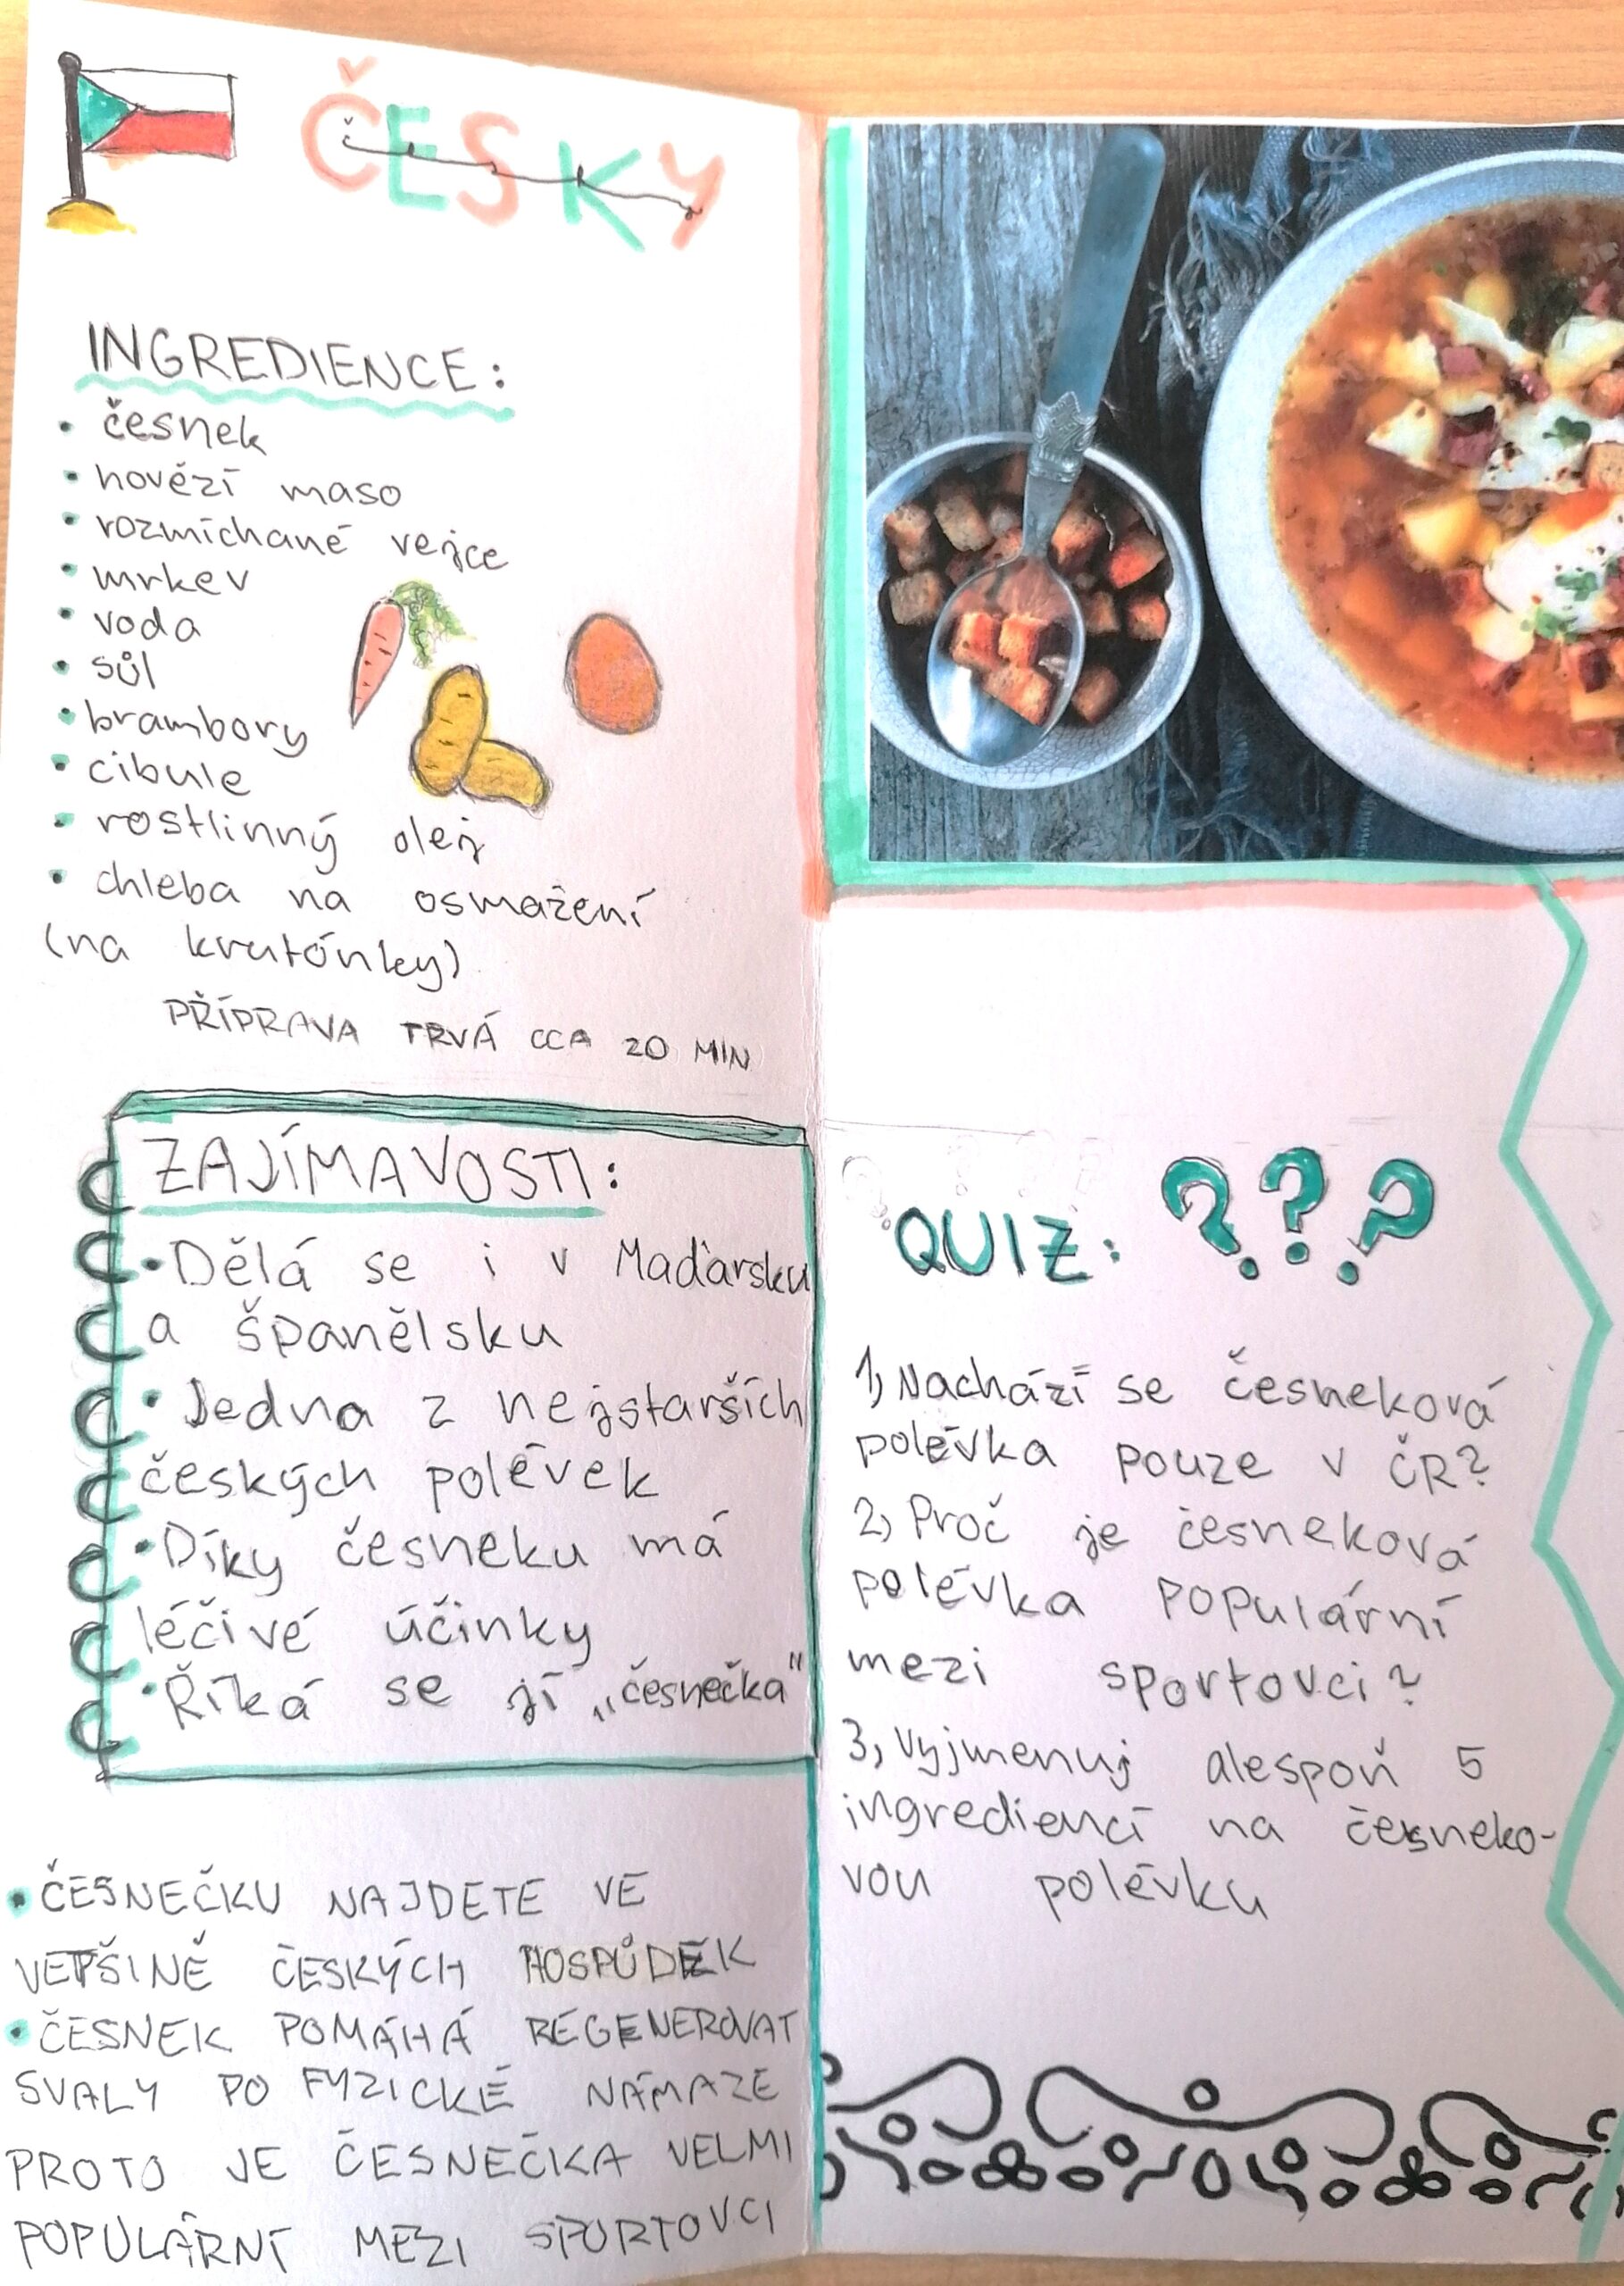 ČESKY
INGREDIENCE:
• česnek
• hovězí maso
• rozmíchané vejce
• mrkev
• voda
• sůl
• brambory
• cibule
• rostlinný olej
• chleba na osmažení
(na krutónky)
PŘÍPRAVA TRVÁ CCA 20 MIN
ZAJÍMAVOSTI:
• Dělá se i v Maďarsku
a španělsku
• Jedna z nejstarších
českých polévek
• Díky česneku má
léčivé účinky
• Říká se jí „česnečka"
• ČESNEČKU NAJDETE VE
VETŠINĚ ČESKÝCH HOSPŮDEK
• ČESNEK POMÁHÁ REGENEROVAT
SVALY PO FYZICKÉ NÁMAZE
PROTO JE ČESNEČKA VELMI
POPULÁRNÍ MEZI SPORTOVCI
QUIZ: ???
1, Nachází se česneková
polévka pouze v ČR?
2, Proč je česneková
polévka populární
mezi sportovci?
3, Vyjmenuj alespoň 5
ingrediencí na česneko-
vou polévku